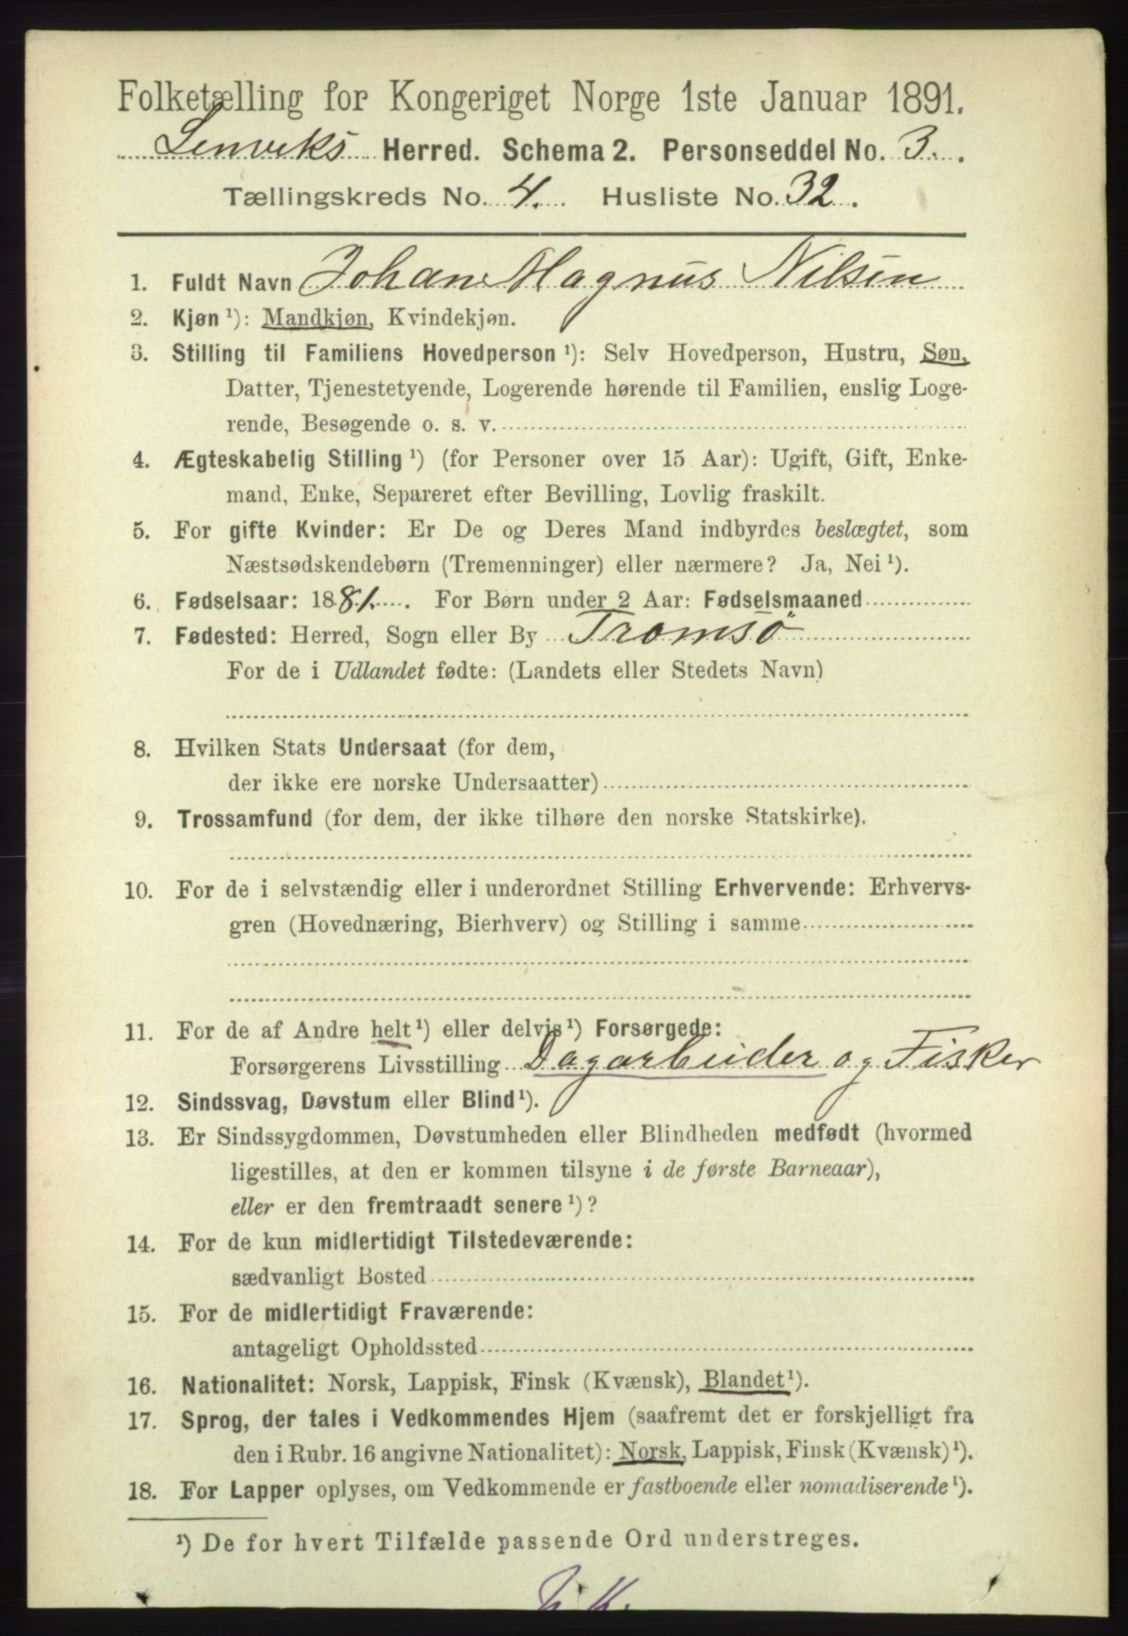 Folketælling for Kongeriget Norge 1ste Januar 1891.
Lenviks Herred. Schema 2. Personseddel No. 3.
Tællingskreds No. 4. Husliste No. 32.
1. Fuldt Navn Johan Magnus Nilsen
2. Kjøn ¹): Mandkjøn, Kvindekjøn.
3. Stilling til Familiens Hovedperson ¹): Selv Hovedperson, Hustru, Søn,
Datter, Tjenestetyende, Logerende hørende til Familien, enslig Loge-
rende, Besøgende o. s. v.
4. Ægteskabelig Stilling ¹) (for Personer over 15 Aar): Ugift, Gift, Enke-
mand, Enke, Separeret efter Bevilling, Lovlig fraskilt.
5. For gifte Kvinder: Er De og Deres Mand indbyrdes beslægtet, som
Næstsødskendebørn (Tremenninger) eller nærmere? Ja, Nei ¹).
6. Fødselsaar: 1881. For Børn under 2 Aar: Fødselsmaaned
7. Fødested: Herred, Sogn eller By Tromsö
For de i Udlandet fødte: (Landets eller Stedets Navn)
8. Hvilken Stats Undersaat (for dem,
der ikke ere norske Undersaatter)
9. Trossamfund (for dem, der ikke tilhøre den norske Statskirke).
10. For de i selvstændig eller i underordnet Stilling Erhvervende: Erhvervs-
gren (Hovednæring, Bierhverv) og Stilling i samme
11. For de af Andre helt ¹) eller delvis ¹) Forsørgede:
Forsørgerens Livsstilling Dagarbeider og Fisker
12. Sindssvag, Døvstum eller Blind ¹).
13. Er Sindssygdommen, Døvstumheden eller Blindheden medfødt (hvormed
ligestilles, at den er kommen tilsyne i de første Barneaar),
eller er den fremtraadt senere ¹)?
14. For de kun midlertidigt Tilstedeværende:
sædvanligt Bosted
15. For de midlertidigt Fraværende:
antageligt Opholdssted
16. Nationalitet: Norsk, Lappisk, Finsk (Kvænsk), Blandet ¹).
17. Sprog, der tales i Vedkommendes Hjem (saafremt det er forskjelligt fra
den i Rubr. 16 angivne Nationalitet): Norsk, Lappisk, Finsk (Kvænsk) ¹).
18. For Lapper oplyses, om Vedkommende er fastboende eller nomadiserende ¹).
¹) De for hvert Tilfælde passende Ord understreges.